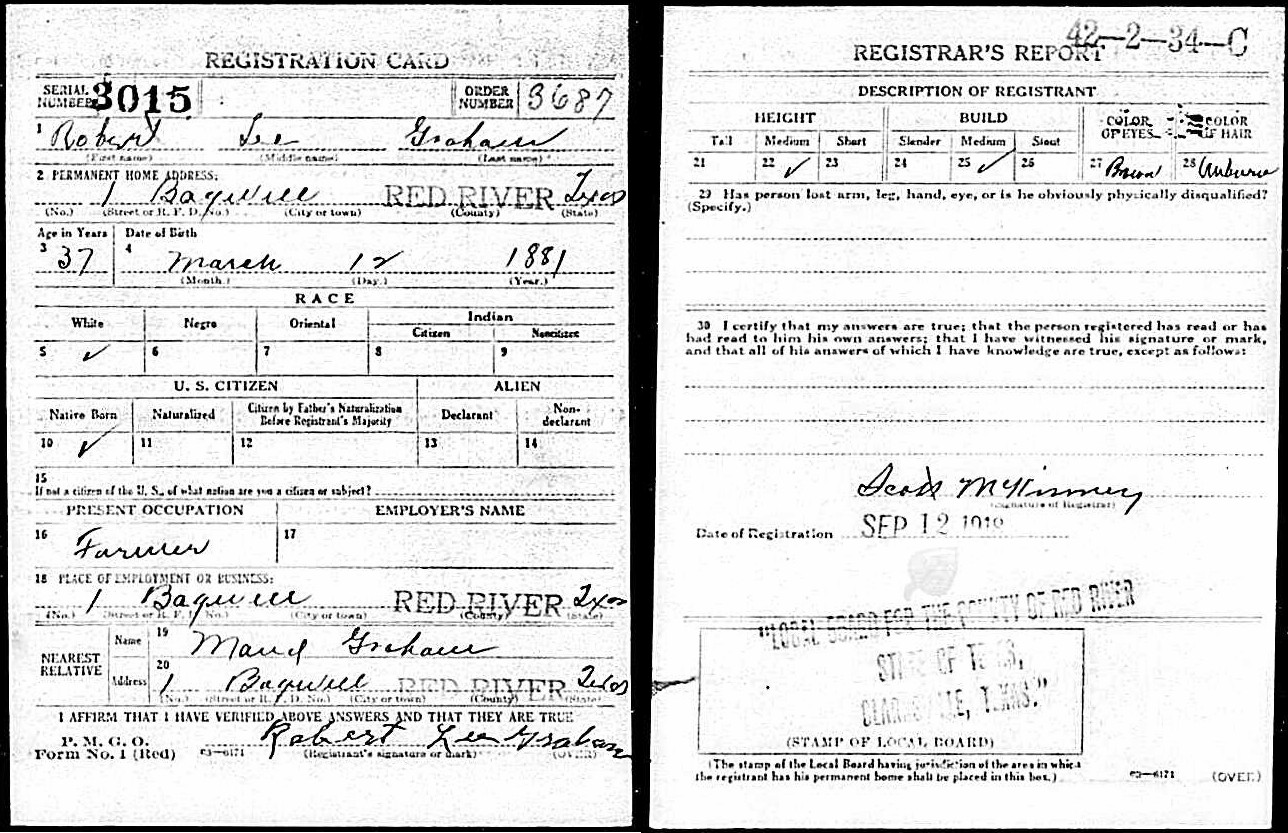 REGISTRATION CARD
SERIAL NUMBER 3015
ORDER NUMBER 3687
1 Robert Lee Graham
(First name) (Middle name) (Last name)
2 PERMANENT HOME ADDRESS:
1 Bagwell RED RIVER Texas
(No.) (Street or R. F. D. No.) (City or town) (County) (State)
Age in Years Date of Birth
3 37 4 March 12 1881
(Month.) (Day.) (Year.)
RACE
White Negro Oriental Indian
Citizen Noncitizen
5 ✓ 6 7 8 9
U. S. CITIZEN ALIEN
Native Born Naturalized Citizen by Father's Naturalization Before Registrant's Majority Declarant Non-declarant
10 ✓ 11 12 13 14
15
If not a citizen of the U. S., of what nation are you a citizen or subject?
PRESENT OCCUPATION EMPLOYER'S NAME
16 Farmer 17
18 PLACE OF EMPLOYMENT OR BUSINESS:
1 Bagwell RED RIVER Texas
(No.) (Street or R. F. D. No.) (City or town) (County) (State)
NEAREST RELATIVE
Name 19 Maud Graham
Address 20 1 Bagwell RED RIVER Texas
(No.) (Street or R. F. D. No.) (City or town) (County) (State)
I AFFIRM THAT I HAVE VERIFIED ABOVE ANSWERS AND THAT THEY ARE TRUE
P. M. G. O.
Form No. 1 (Red) 03—6171 Robert Lee Graham
(Registrant's signature or mark) (OVER)
42-2-34-C
REGISTRAR'S REPORT
DESCRIPTION OF REGISTRANT
HEIGHT BUILD COLOR OF EYES COLOR OF HAIR
Tall Medium Short Slender Medium Stout
21 22 ✓ 23 24 25 ✓ 26 27 Brown 28 Auburn
29 Has person lost arm, leg, hand, eye, or is he obviously physically disqualified?
(Specify.)
30 I certify that my answers are true; that the person registered has read or has
had read to him his own answers; that I have witnessed his signature or mark,
and that all of his answers of which I have knowledge are true, except as follows:
Scott McKinney
(Signature of Registrar)
Date of Registration SEP 12 1918
"LOCAL BOARD FOR THE COUNTY OF RED RIVER
STATE OF TEXAS,
CLARKSVILLE, TEXAS."
(STAMP OF LOCAL BOARD)
(The stamp of the Local Board having jurisdiction of the area in which
the registrant has his permanent home shall be placed in this box.)
03—6171 (OVER)